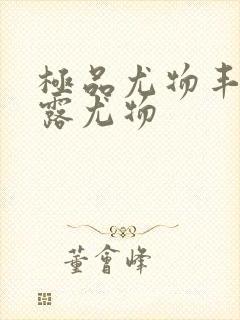 極品尤物丰
露尤物
董會峰